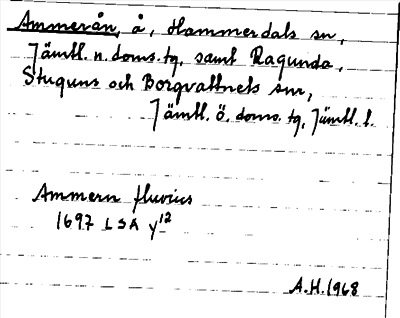 Ammerån, å, Hammerdals sn,
Jämtl. n. doms. tg. samt Ragunda,
Stuguns och Borgvattnets snr,
Jämtl. ö. doms. tg, Jämtl. l.
Ammern fluvius
1697 LSA Y12
A.H. 1968